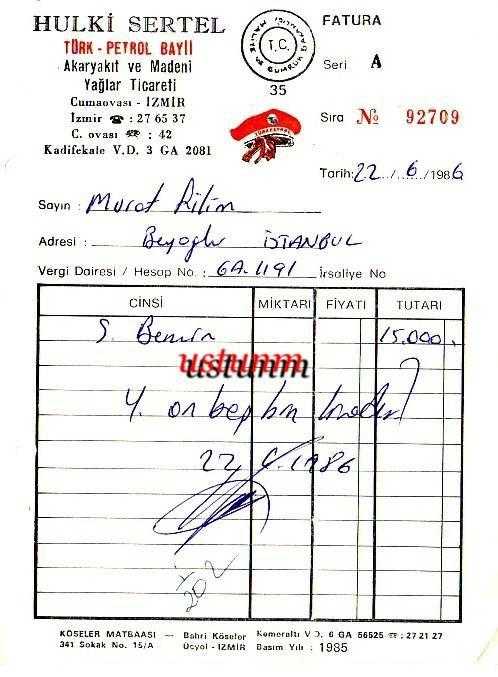 HULKİ SERTEL
TÜRK - PETROL BAYİİ
Akaryakıt ve Madeni
Yağlar Ticareti
Cumaovası - İZMİR
İzmir ☎ : 27 65 37
C. ovası ☎ : 42
Kadifekale V.D. 3 GA 2081
T.C.
35
TÜRKPETROL
FATURA
Seri A
Sıra № 92709
Tarih: 22/6/1986
Sayın : Murat
Adresi : Beyoğlu İSTANBUL
Vergi Dairesi / Hesap No : GA.1191 İrsaliye No
CİNSİ MİKTARI FİYATI TUTARI
S. Benzin 15.000.
ustumm
Y. on beş bin liradır
22.6.1986
KÖSELER MATBAASI — Bahri Köseler Kemeraltı V.D. 6 GA 56525 ☎ : 27 21 27
341 Sokak No. 15/A Üçyol - İZMİR Basım Yılı : 1985